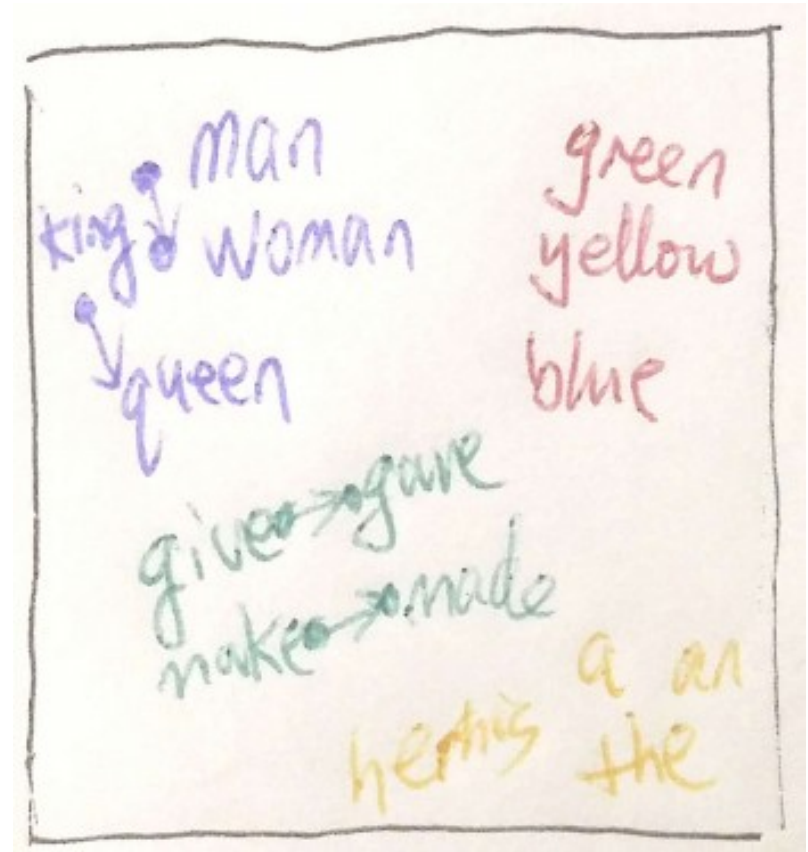 man
king woman
queen
green
yellow
blue
give gave
make made
a an
her his the